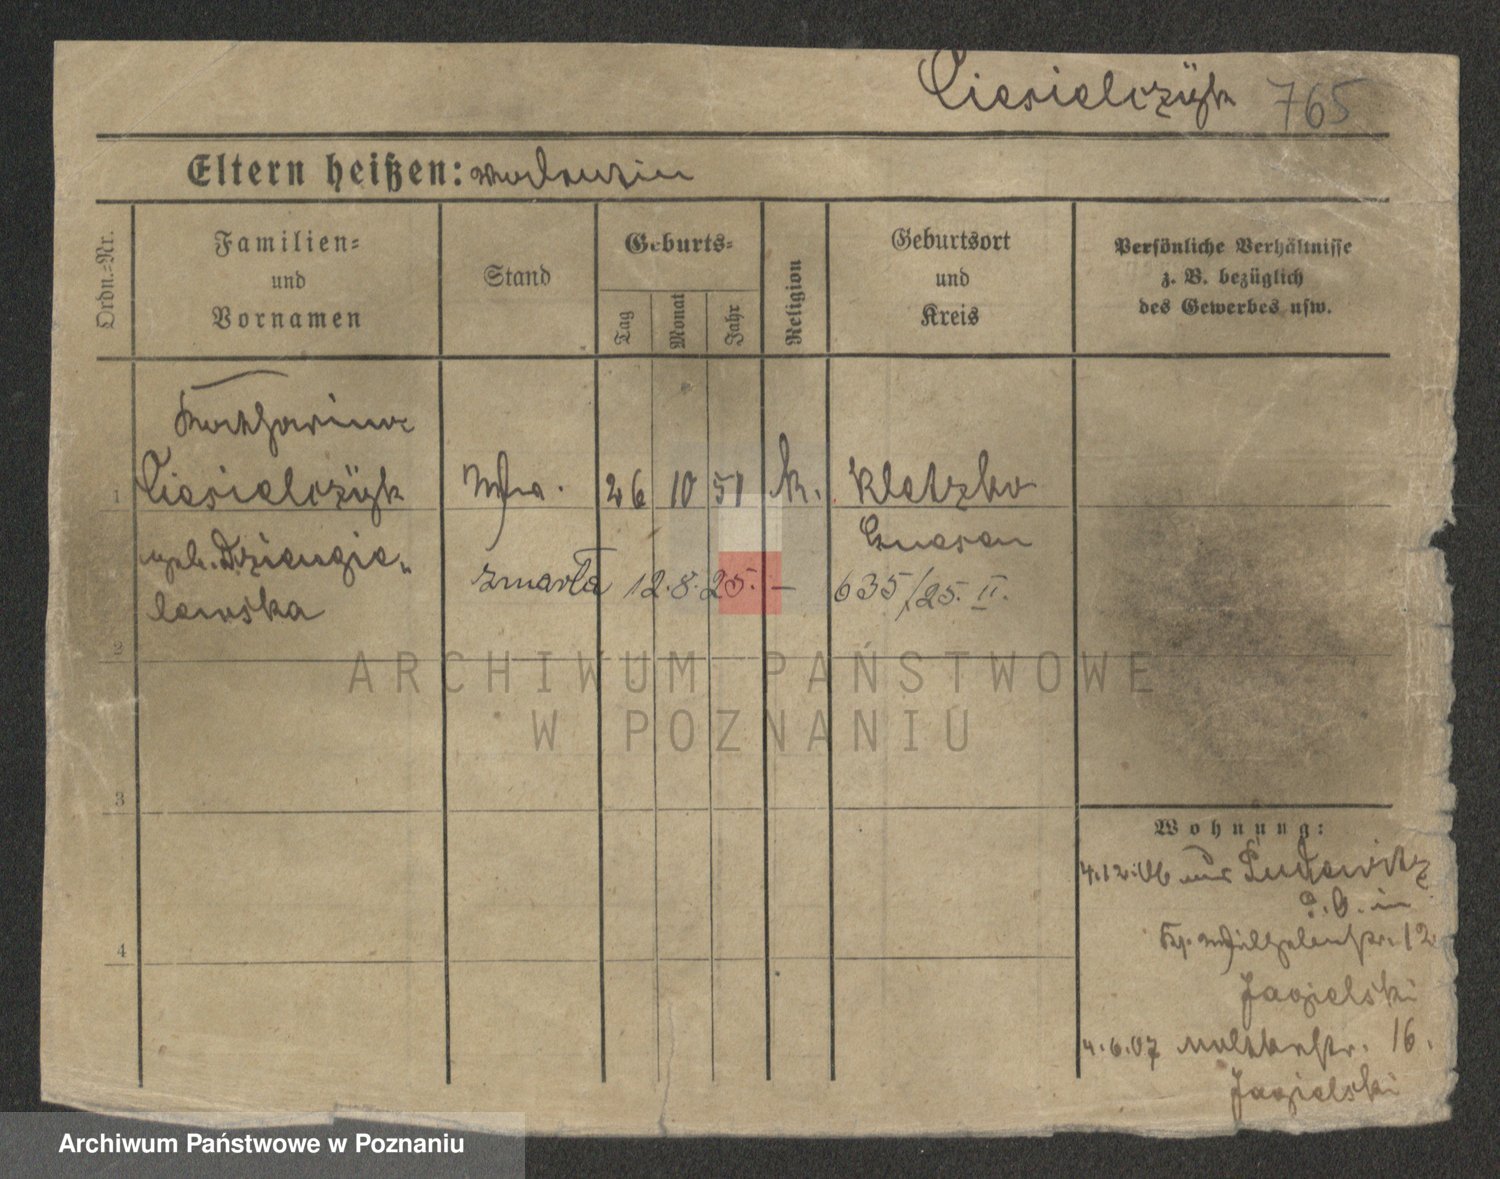 Ciesielczÿk 765
Eltern heißen:
Ordn.=Nr.
Familien=
und
Vornamen
Stand
Geburts=
Tag
Monat
Jahr
Religion
Geburtsort
und
Kreis
Persönliche Verhältnisse
z. B. bezüglich
des Gewerbes usw.
Katharina
1 Ciesielczÿk Wwe. 26 10 51 k. Kletzko
Gnesen
geb. Dziengie„
lewska
zmarła 12.8.25. — 635/25. II.
2
3
4
Wohnung:
4.12.06 aus Pudewitz
in
Wilhelmstr. 12
Jagielski
4.6.07 Moltkestr. 16.
Jagielski
ARCHIWUM PAŃSTWOWE
W POZNANIU
Archiwum Państwowe w Poznaniu